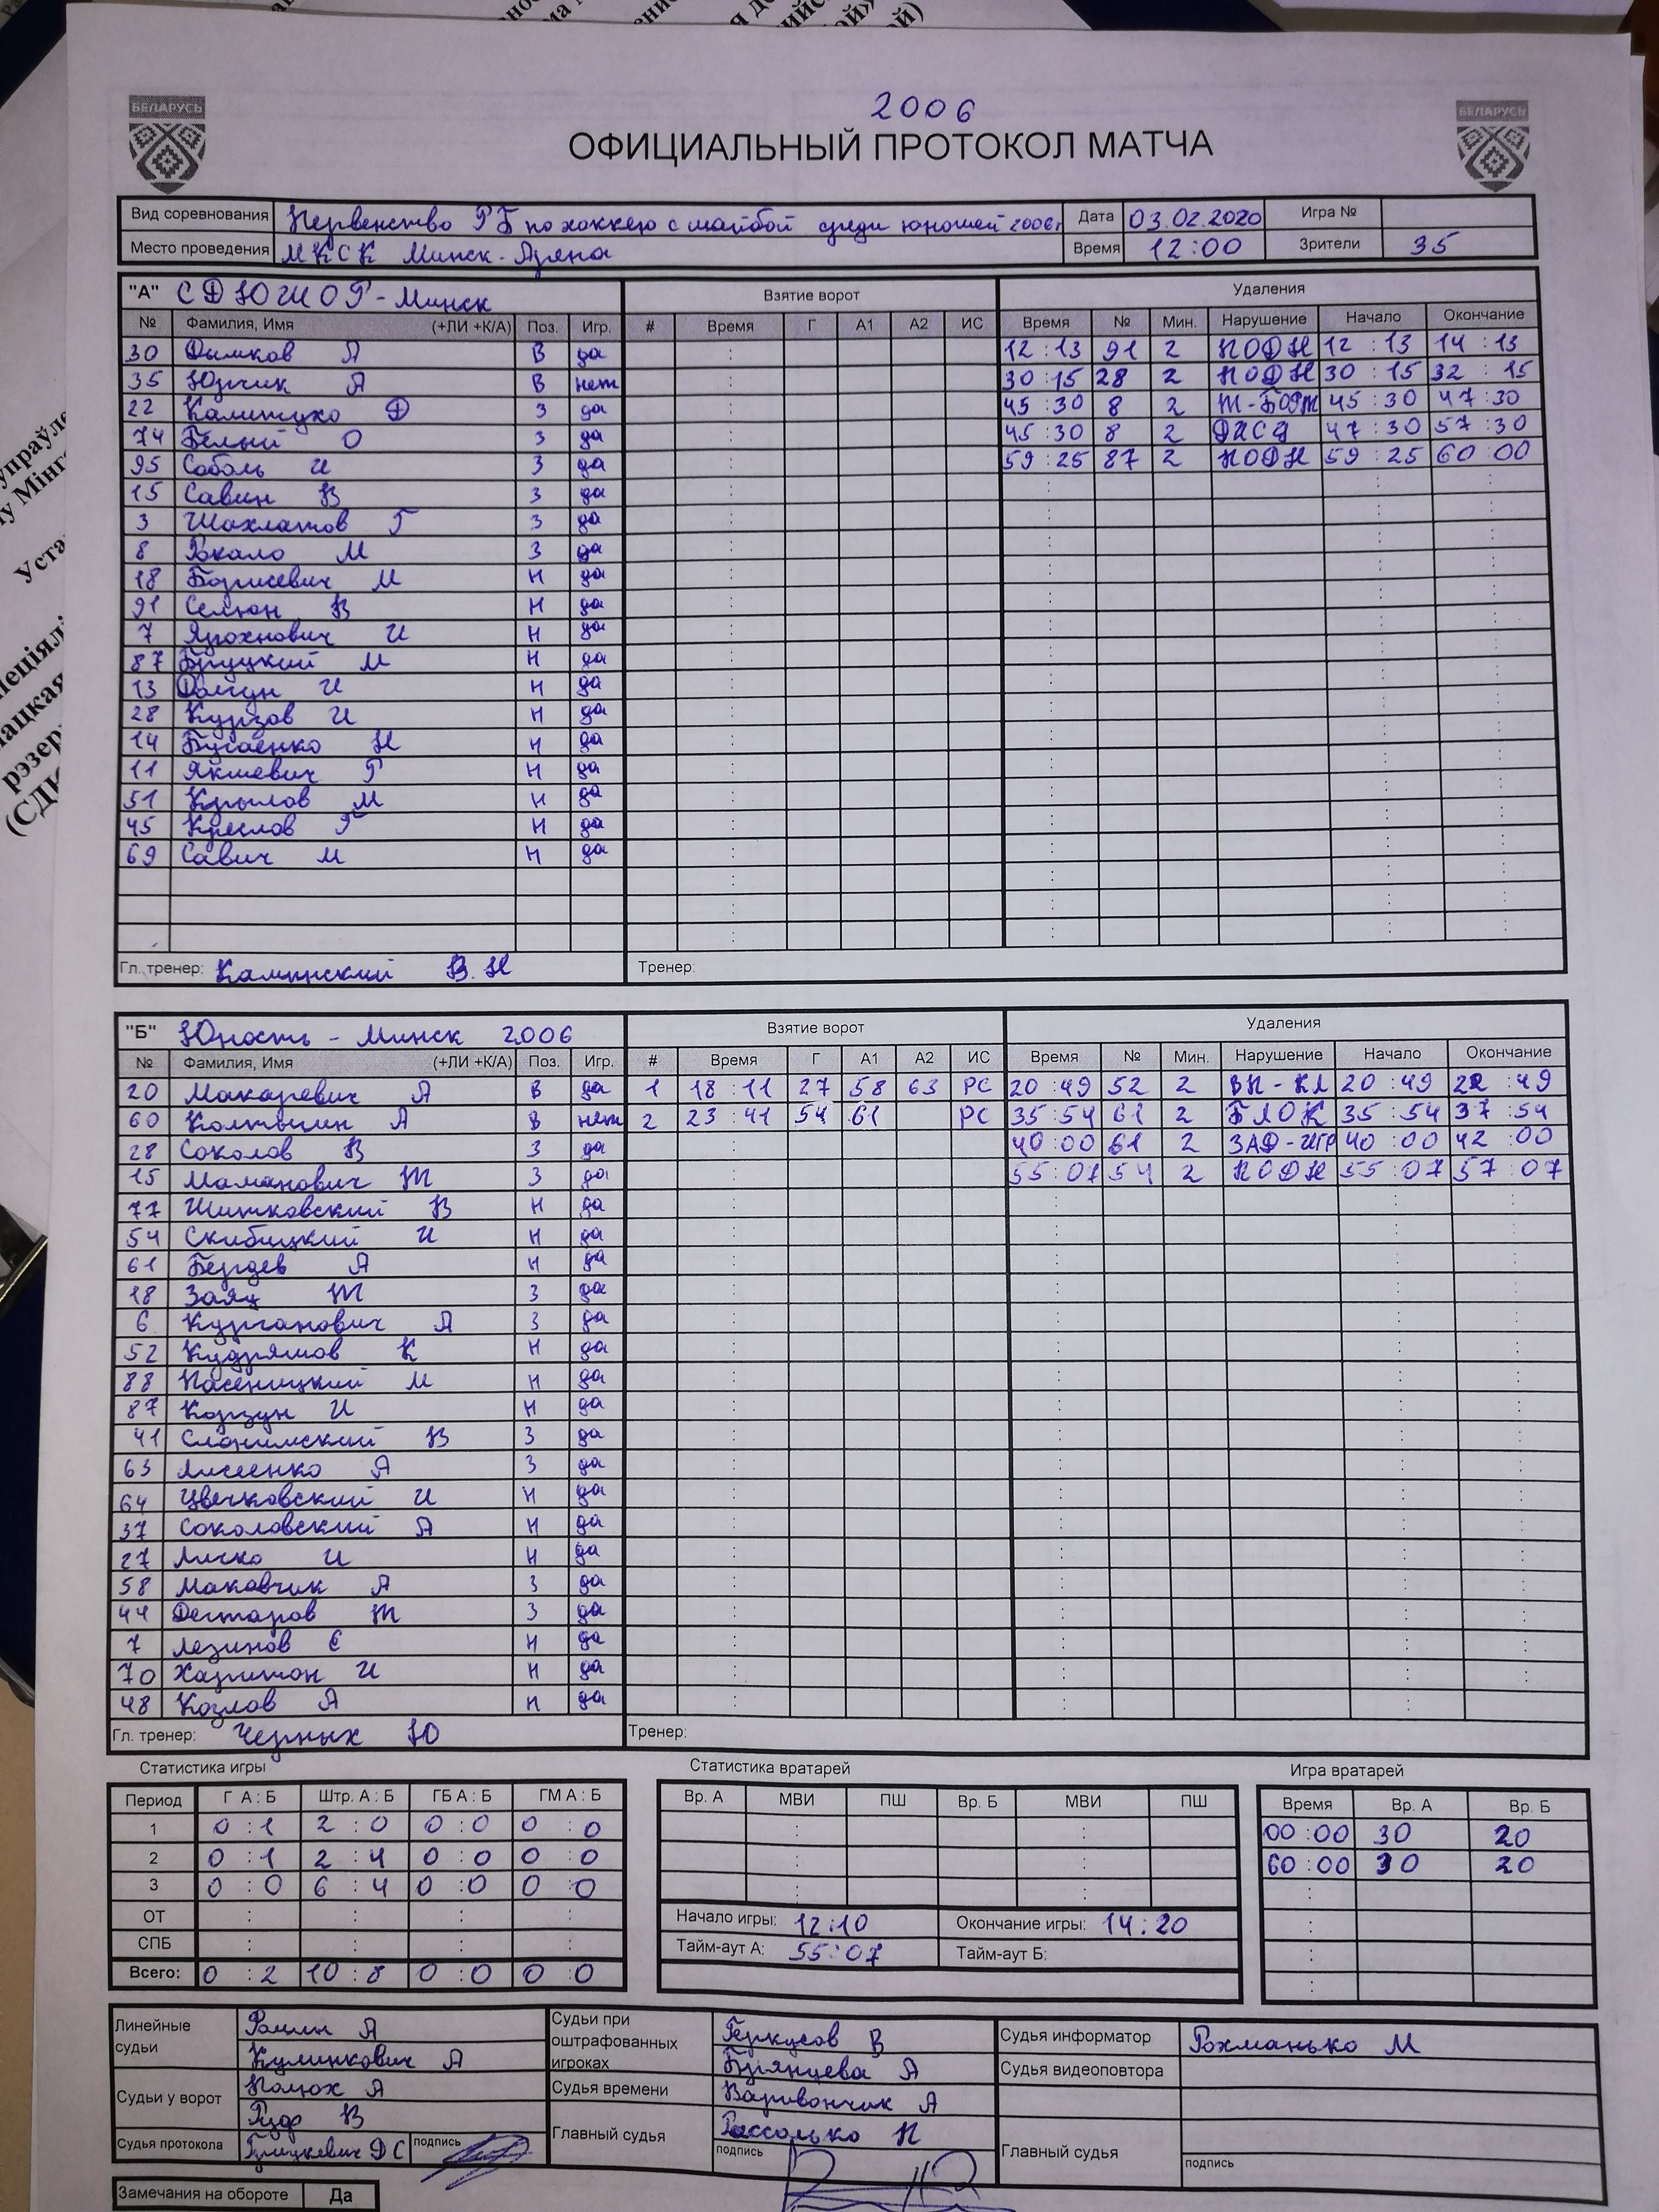 2006
БЕЛАРУСЬ
БЕЛАРУСЬ
ОФИЦИАЛЬНЫЙ ПРОТОКОЛ МАТЧА
Вид соревнования Первенство РБ по хоккею с шайбой среди юношей 2006г Дата 03.02.2020 Игра №
Место проведения МКСК Минск-Арена Время 12:00 Зрители 35
"А" СДЮШОР-Минск Взятие ворот Удаления
№ Фамилия, Имя (+ЛИ +К/А) Поз. Игр. # Время Г А1 А2 ИС Время № Мин. Нарушение Начало Окончание
30 Дымков А В да : 12:13 91 2 ПОДН 12:13 14:13
35 Юрчик А В нет : 30:15 28 2 ПОДН 30:15 32:15
22 Калитуко Ф З да : 45:30 8 2 Т-БОРТ 45:30 47:30
74 Белый О З да : 45:30 8 2 ДИСЦ 47:30 57:30
95 Соболь И З да : 59:25 87 2 ПОДН 59:25 60:00
15 Савин В З да
3 Шахматов Г З да
8 Рокало М З да
18 Борисевич М Н да
91 Селюн В Н да
7 Ярохнович И Н да
87 Бруцкий М Н да
13 Долгун И Н да
28 Курзов И Н да
14 Бугаенко Н Н да
11 Якшевич Р Н да
51 Крылов М Н да
45 Круглов Р Н да
69 Савич М Н да
Гл. тренер: Каминский В.Н Тренер:
"Б" Юность - Минск 2006 Взятие ворот Удаления
№ Фамилия, Имя (+ЛИ +К/А) Поз. Игр. # Время Г А1 А2 ИС Время № Мин. Нарушение Начало Окончание
20 Макаревич А В да 1 18:11 27 58 63 РС 20:49 52 2 ВП-КЛ 20:49 22:49
60 Колтыгин А В нет 2 23:41 54 61 РС 35:54 61 2 БЛОК 35:54 37:54
28 Соколов В З да : 40:00 61 2 ЗАД-ИГР 40:00 42:00
15 Маманович Т З да : 55:07 54 2 ПОДН 55:07 57:07
77 Шитковский В Н да
54 Скибицкий И Н да
61 Бердев А Н да
18 Заяц Т З да
6 Курганович А З да
52 Кудряшов К Н да
88 Пасеницкий М Н да
87 Корзун И Н да
41 Слонимский В З да
63 Лисеенко А З да
64 Цвечковский И Н да
37 Соколовский А Н да
27 Личко И Н да
58 Маковчик А З да
44 Дегтяров Т З да
7 Лезинов Е Н да
70 Харитон И Н да
48 Козлов А Н да
Гл. тренер: Черных Ю Тренер:
Статистика игры Статистика вратарей Игра вратарей
Период Г А : Б Штр. А : Б ГБ А : Б ГМ А : Б Вр. А МВИ ПШ Вр. Б МВИ ПШ Время Вр. А Вр. Б
1 0:1 2:0 0:0 0:0 00:00 30 20
2 0:1 2:4 0:0 0:0 60:00 30 20
3 0:0 6:4 0:0 0:0
ОТ : : : : Начало игры: 12:10 Окончание игры: 14:20
СПБ : : : : Тайм-аут А: 55:07 Тайм-аут Б:
Всего: 0:2 10:8 0:0 0:0
Линейные судьи Ролин А
Кулинкович А
Судьи при оштрафованных игроках Геркусов В
Брянцева А
Судья информатор Рохманько М
Судья видеоповтора
Судьи у ворот Полюх А
Рудр В
Судья времени Варивончик А
Судья протокола Грицкевич ДС подпись
Главный судья Рассолько П
подпись
Главный судья
подпись
Замечания на обороте Да